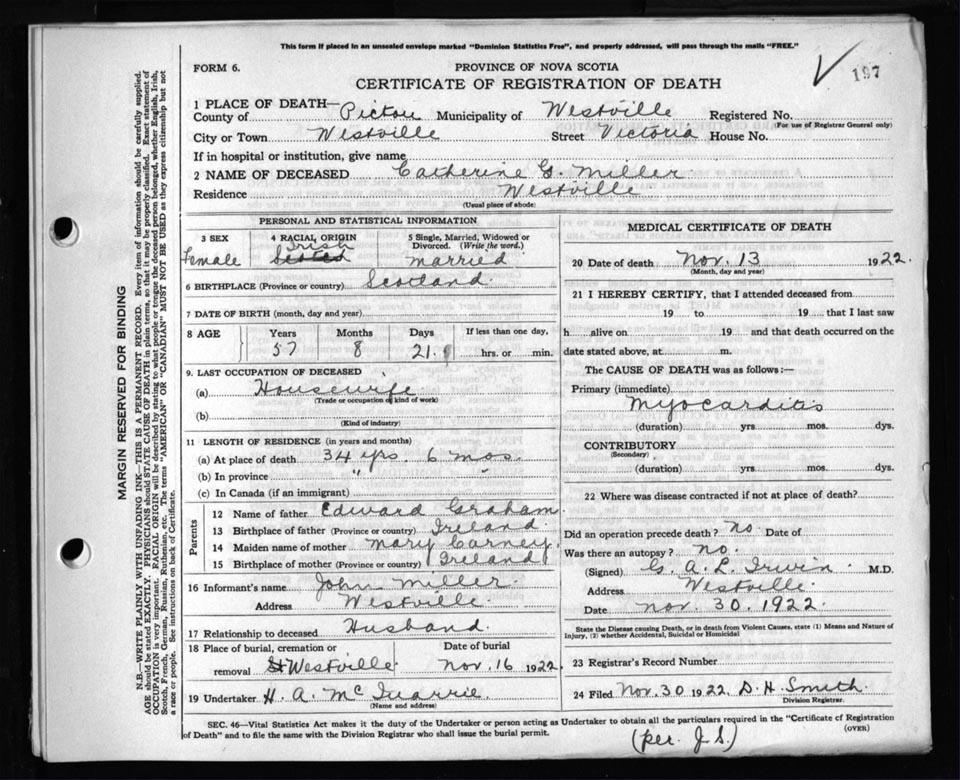 This form if placed in an unsealed envelope marked "Dominion Statistics Free", and properly addressed, will pass through the mails "FREE."
FORM 6.
PROVINCE OF NOVA SCOTIA
197
CERTIFICATE OF REGISTRATION OF DEATH
1 PLACE OF DEATH—
County of Pictou Municipality of Westville Registered No.
(For use of Registrar General only)
City or Town Westville Street Victoria House No.
If in hospital or institution, give name
2 NAME OF DECEASED Catherine G. Miller
Residence Westville
(Usual place of abode)
PERSONAL AND STATISTICAL INFORMATION
3 SEX 4 RACIAL ORIGIN 5 Single, Married, Widowed or Divorced. (Write the word.)
Female Irish married
6 BIRTHPLACE (Province or country) Scotland
7 DATE OF BIRTH (month, day and year)
8 AGE Years Months Days If less than one day,
57 8 21 hrs. or min.
9. LAST OCCUPATION OF DECEASED
(a) Housewife
(Trade or occupation or kind of work)
(b)
(Kind of industry)
11 LENGTH OF RESIDENCE (in years and months)
(a) At place of death 34 yrs. 6 mos.
(b) In province " "
(c) In Canada (if an immigrant)
Parents
12 Name of father Edward Graham
13 Birthplace of father (Province or country) Ireland
14 Maiden name of mother Mary Carney
15 Birthplace of mother (Province or country) Ireland
16 Informant's name John Miller
Address Westville
17 Relationship to deceased Husband
18 Place of burial, cremation or removal Westville Date of burial Nov. 16 1922
19 Undertaker H. A. McQuarrie
(Name and address)
MEDICAL CERTIFICATE OF DEATH
20 Date of death Nov. 13 1922.
(Month, day and year)
21 I HEREBY CERTIFY, that I attended deceased from
19 to 19 that I last saw
h alive on 19 and that death occurred on the
date stated above, at m.
The CAUSE OF DEATH was as follows:—
Primary (immediate)
Myocarditis
(duration) yrs mos. dys.
CONTRIBUTORY
(Secondary)
(duration) yrs. mos. dys.
22 Where was disease contracted if not at place of death?
Did an operation precede death? no Date of
Was there an autopsy? no.
(Signed) G. A. L. Irwin M.D.
Address Westville
Date Nov. 30. 1922.
State the Disease causing Death, or in death from Violent Causes, state (1) Means and Nature of
Injury, (2) whether Accidental, Suicidal or Homicidal
23 Registrar's Record Number
24 Filed Nov. 30 1922, D. H. Smith
Division Registrar.
SEC. 46—Vital Statistics Act makes it the duty of the Undertaker or person acting as Undertaker to obtain all the particulars required in the "Certificate of Registration
of Death" and to file the same with the Division Registrar who shall issue the burial permit.
(OVER)
(per. J. S.)
MARGIN RESERVED FOR BINDING
N.B.—WRITE PLAINLY WITH UNFADING INK—THIS IS A PERMANENT RECORD. Every item of information should be carefully supplied.
AGE should be stated EXACTLY. PHYSICIANS should STATE CAUSE OF DEATH in plain terms, so that it may be properly classified. Exact statement of
OCCUPATION is very important. RACIAL ORIGIN will be described by stating to what people or tongue the deceased person belonged, whether English, Irish,
Scotch, French, German, Russian, Ruthenian, etc. The terms "AMERICAN" OR "CANADIAN" MUST NOT BE USED as they express citizenship but not
a race or people. See instructions on back of Certificate.